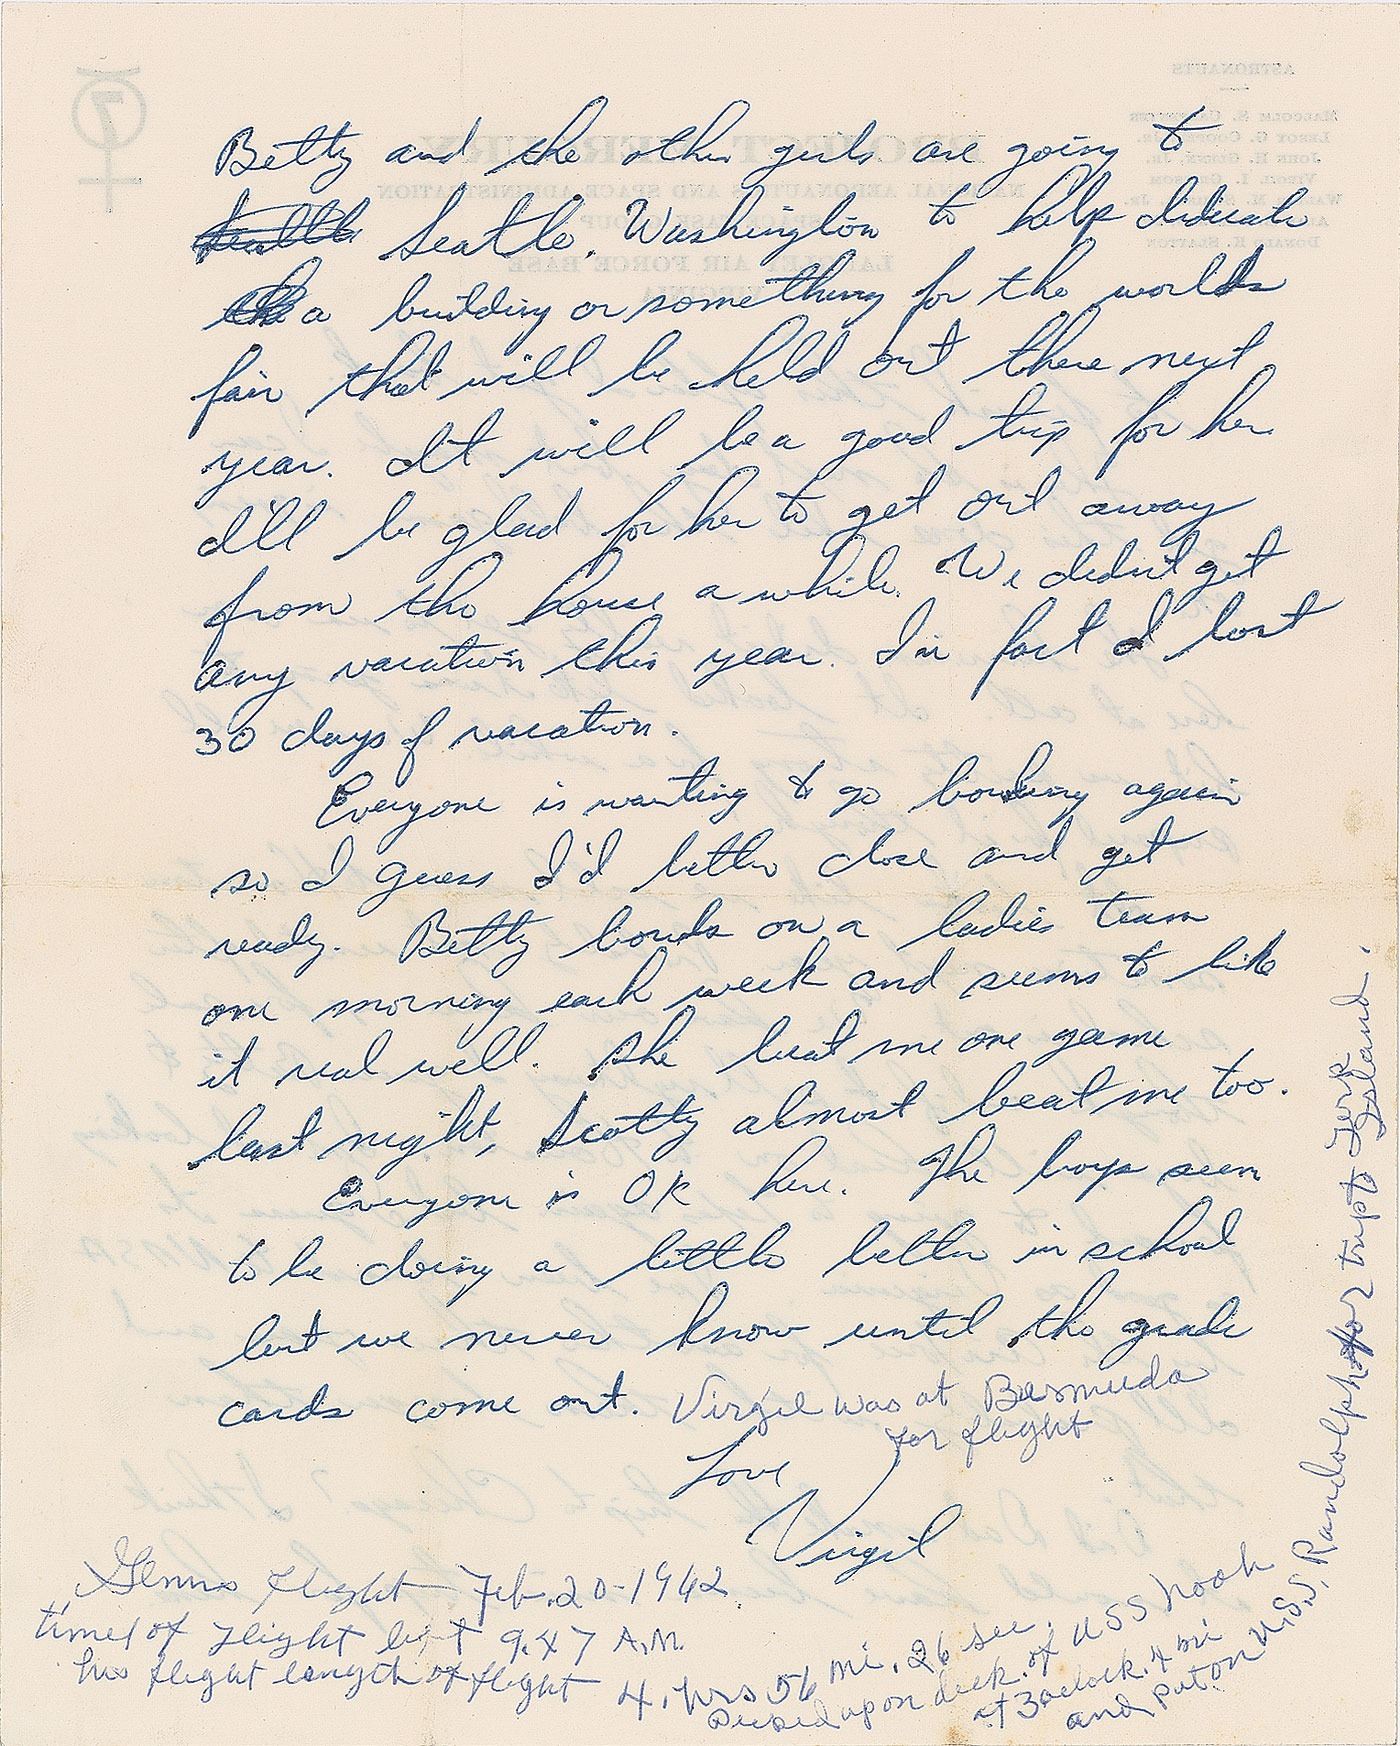 Betty and the other girls are going to
Seattle Seattle, Washington to help didicate
the a building or something for the worlds
fair that will be held out there next
year. It will be a good trip for her.
I'll be glad for her to get out away
from the house a while. We didn't get
any vacation this year. In fact I lost
30 days of vacation.
Everyone is wanting to go bowling again
so I guess I'd better close and get
ready. Betty bowls on a ladies team
one morning each week and seems to like
it real well. She beat me one game
last night, Scotty almost beat me too.
Everyone is OK here. The boys seem
to be doing a little better in school
but we never know until the grade
cards come out. Virgil was at Bermuda
for flight
Love
Virgil
Glenns flight Feb. 20-1962
time of flight left 9:47 A.M.
his flight length of flight 4. hrs 56 mi. 26 sec.
Picked up on deck of USS Noah
at 3 oclock. 4 mi
and put on U.S.S. Randolph for trip to Turk
Island.
ASTRONAUTS
MALCOLM S. CARPENTER
LEROY G. COOPER, JR.
JOHN H. GLENN, JR.
VIRGIL I. GRISSOM
DONALD K. SLAYTON
PROJECT MERCURY
NATIONAL AERONAUTICS AND SPACE ADMINISTRATION
SPACE TASK GROUP
LANGLEY AIR FORCE BASE
VIRGINIA
7